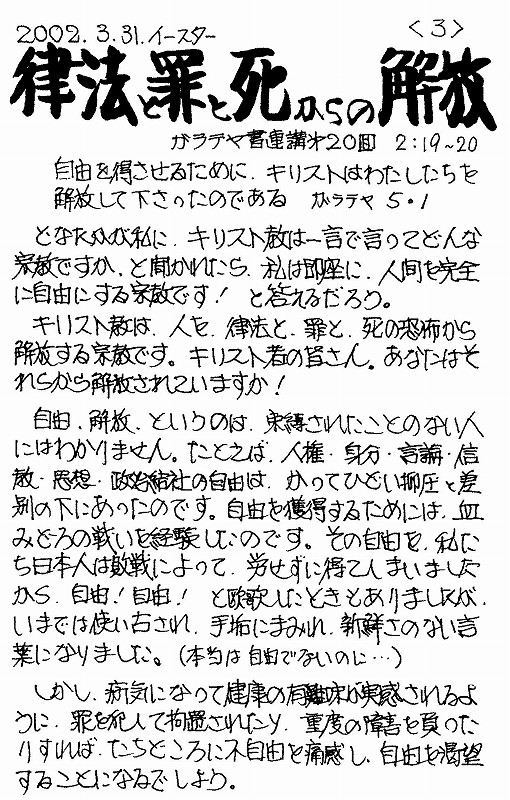 2002.3.31.イースター <3>
律法と罪と死からの解放
ガラテヤ書連講才20回 2:19~20
自由を得させるために、キリストはわたしたちを
解放して下さったのである ガラテヤ 5・1
どなたかが私に、キリスト教は一言で言ってどんな
宗教ですか、と聞かれたら、私は即座に、人間を完全
に自由にする宗教です! と答えるだろう。
キリスト教は、人を、律法と、罪と、死の恐怖から
解放する宗教です。キリスト者の皆さん。あなたはそ
れらから解放されていますか!
自由、解放、というのは、束縛されたことのない人
にはわかりません。たとえば、人権・身分・言論・信
教・思想・政治結社の自由は、かつてひどい抑圧と差
別の下にあったのです。自由を獲得するためには、血
みどろの戦いを経験したのです。その自由を、私た
ち日本人は敗戦によって、労せずに得てしまいました
から、自由!自由! と欧歌したときもありましたが、
いまでは使い古され、手垢にまみれ、新鮮さのない言
葉になりました。(本当は自由でないのに…)
しかし、病気になって健康の有難味が実感されるよ
うに、罪を犯して拘置されたり、重度の障害を負った
りすれば、たちどころに不自由を痛感し、自由を渇望
することになるでしょう。